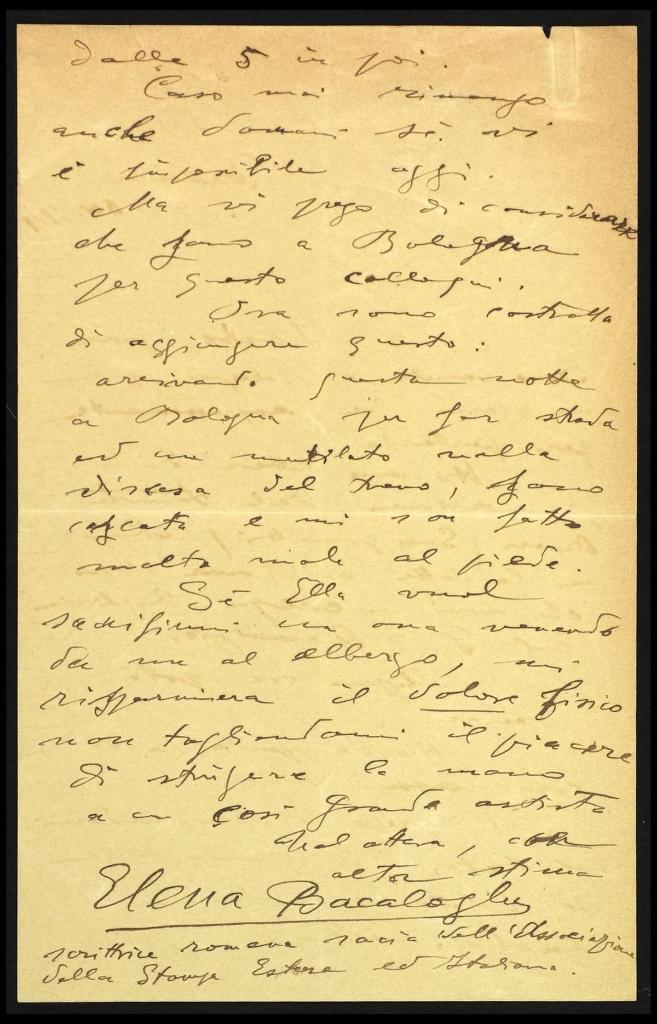 dalle 5 in poi.
Caso mai rimango
anche domani se vi
è impossibile oggi.
Ma vi prego di considerare
che sono a Bologna
per questo colloqui.
Ora sono costretta
di aggiungere questo:
arrivando questa notte
a Bologna per far strada
ed un mutilato nella
discesa del treno, sono
cascata e mi son fatto
molto male al piede.
Se Ella vuol
sacrificarmi un ora venendo
da me al albergo, mi
rispparmiera il dolore fisico
non togliendomi il piacere
di stringere la mano
a un così grande artista
Nel attesa, con
alta stima
Elena Bacaloglu
scrittrice romena socia dell'Associazione
della Stampa Estera ed Italiana.